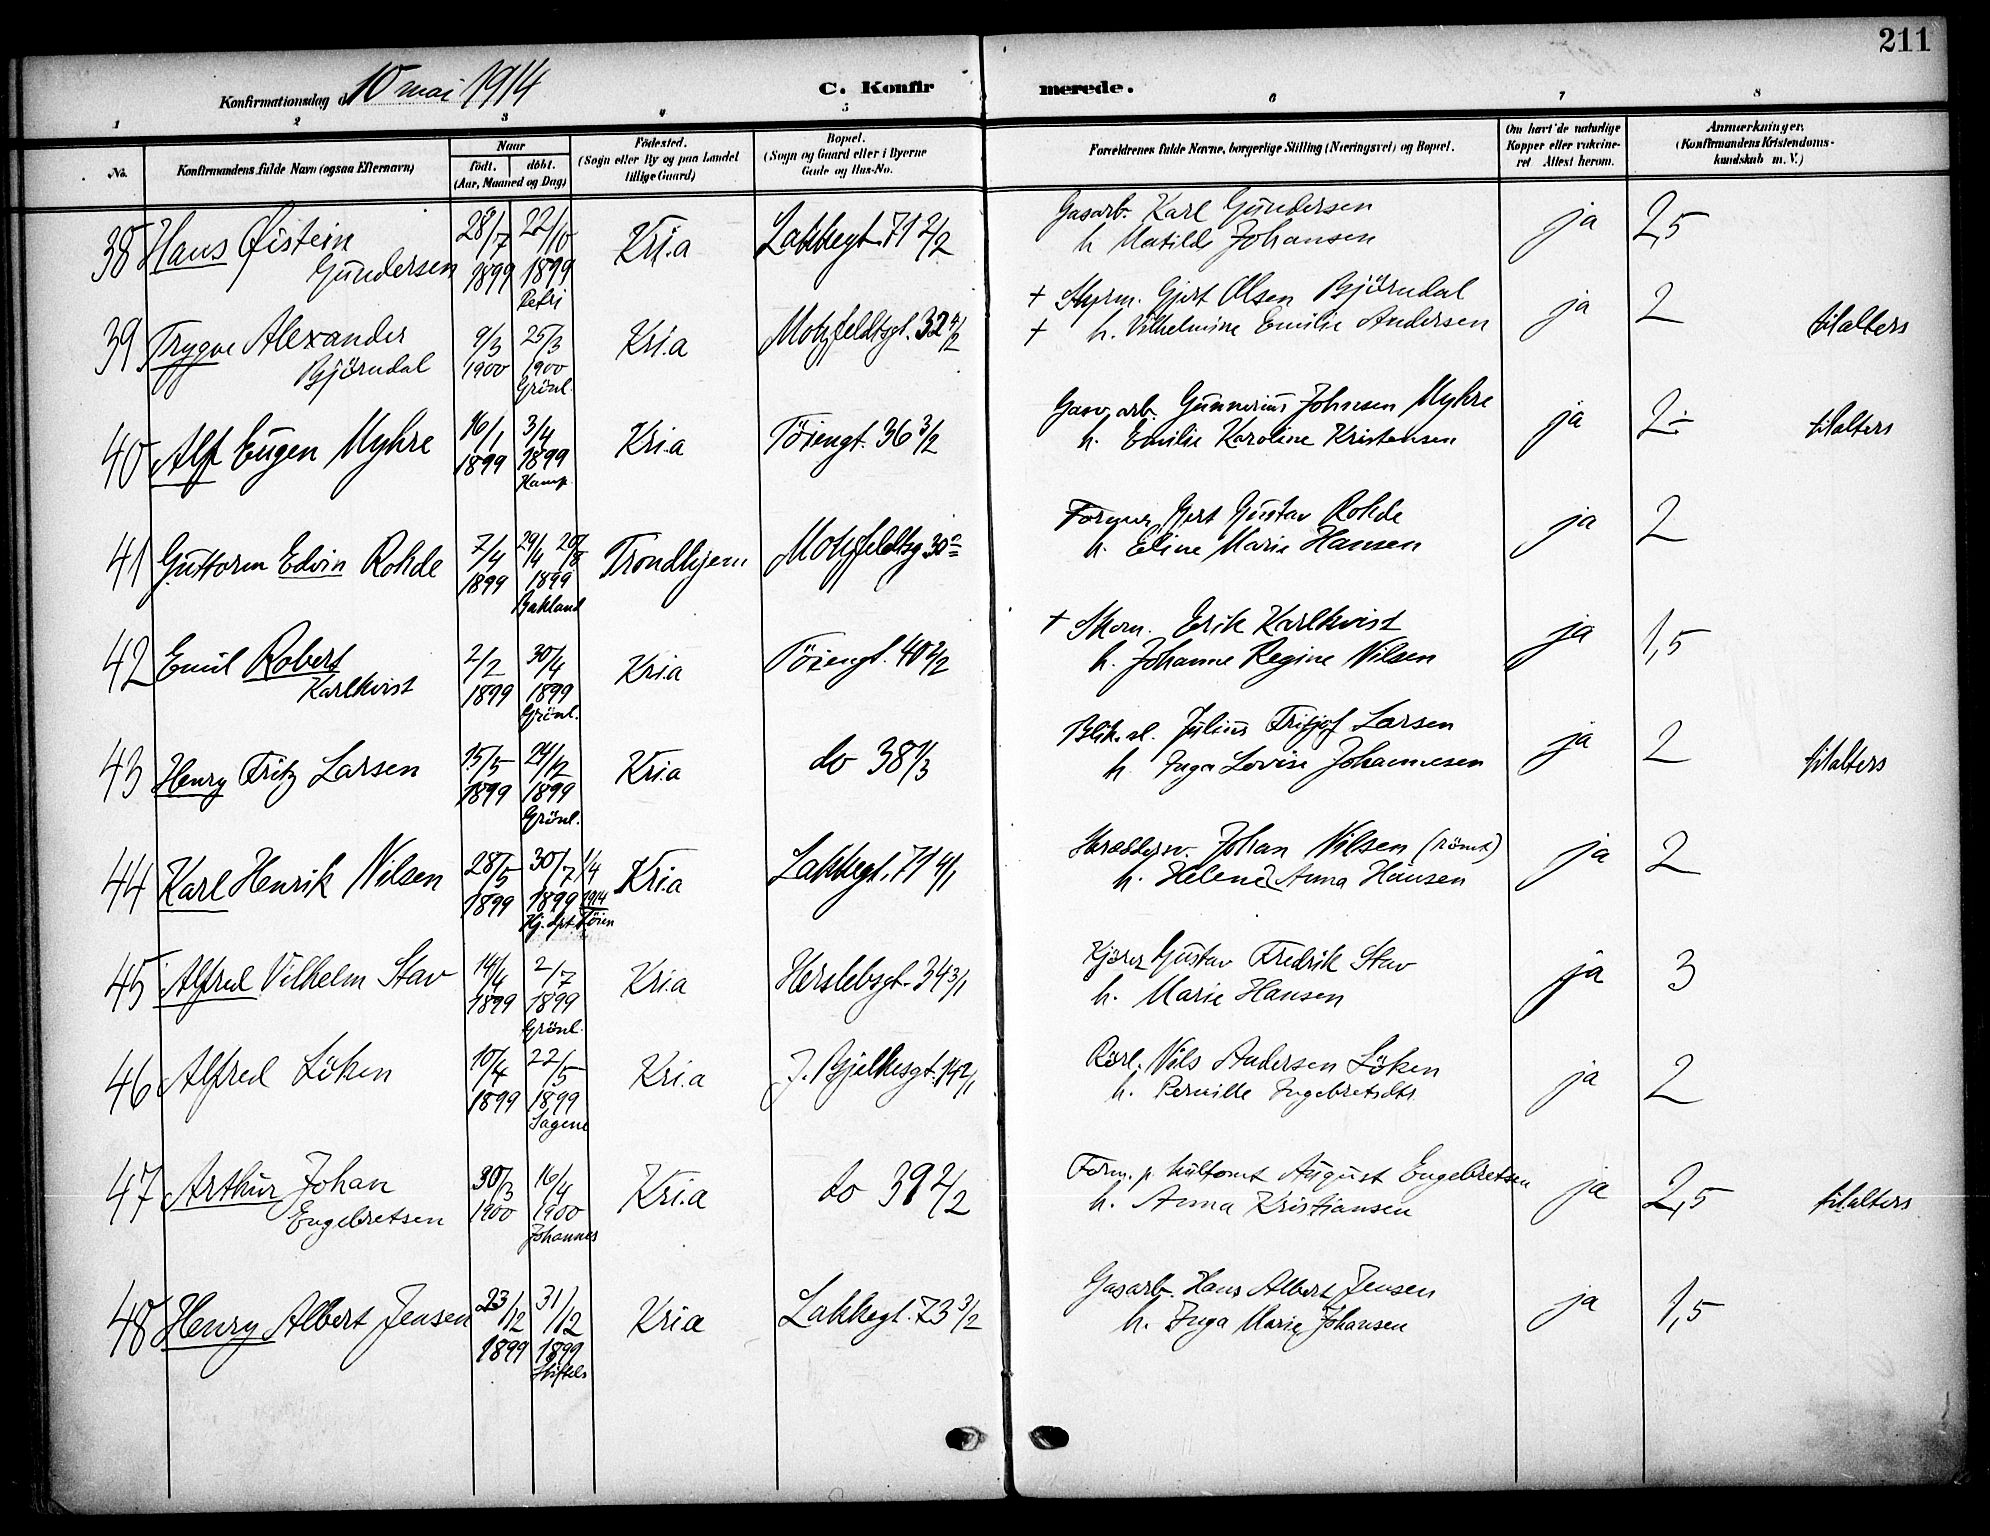 211
Konfirmationsdag d. 10 mai 1914
C. Konfirmerede.
1 2 3 4 5 6 7 8
No.
Konfirmandens fulde Navn (ogsaa Efternavn)
Naar
født. døbt.
(Aar, Maaned og Dag)
Fødested.
(Sogn eller By og paa Landet
tillige Gaard)
Bopæl.
(Sogn og Gaard eller i Byerne
Gade og Hus-No.
Forældrenes fulde Navne, borgerlige Stilling (Næringsvei) og Bopæl.
Om havt de naturlige
Kopper eller vakcine-
ret Attest herom.
Anmærkninger.
(Konfirmandens Kristendoms-
kundskab m. V.)
38 Hans Øistein 28/7 22/10 Kri.a Lakkegt. 71 2/2 Gasarb. Karl Gundersen ja 2,5
Gundersen 1899 1899 h. Matilde Johansen
Petri
39 Trygve Alexander 9/3 25/3 Kri.a Motzfeldtsgt. 32 4/2 + Styrm. Gjert Olsen Björndal ja 2 tilalters
Björndal 1900 1900 + h. Vilhelmine Emilie Andersen
Grönl.
40 Alf Eugen Myhre 16/1 3/4 Kri.a Töiengt. 36 3/2 Gasv. arb. Gunnerius Johnsen Myhre ja 2÷ tilalters
1899 1899 h. Emilie Karoline Kristensen
Kamp.
41 Guttorm Edvin Rohde 7/4 29/4 20/8 Trondhjem Motzfeldtsg 30 Former Gert Gustav Rohde ja 2
1899 1899 h. Eline Marie Hansen
Bakland
42 Emil Robert 2/2 30/4 Kri.a Töiengt. 40 2/2 + Skom. Erik Karlkvist ja 1,5
Karlkvist 1899 1899 h. Johanne Regine Nilsen
Grönl.
43 Henry Fritz Larsen 15/5 24/12 Kri.a do 38 1/3 Blik.sl. Julius Fritjof Larsen ja 2 tilalters
1899 1899 h. Inga Lovise Johannesen
Grönl.
44 Karl Henrik Nilsen 28/5 30/7 1/4 Kri.a Lakkegt. 71 4/1 Johan Nilsen (römt) ja 2
1899 1899 1914 h. Helene Anna Hansen
Hj. dpt. Töien
45 Alfred Vilhelm Stav 14/4 2/7 Kri.a Herslebsgt. 34 3/1 Kjörer Gustav Fredrik Stav ja 3
1899 1899 h. Marie Hansen
Grönl.
46 Alfred Löken 10/4 22/5 Kri.a J. Bjelkesgt. Rörl. Nils Andersen Löken ja 2
1899 1899 h. Pernille Ingebretsdtr.
Sagene
47 Arthur Johan 30/3 16/4 Kri.a do 39 2/2 Form. p. kultomt August Engebretsen ja 2,5 tilalters
Engebretsen 1900 1900 h. Anna Kristiansen
Johannes
48 Henry Albert Jensen 23/12 31/12 Kri.a Lakkegt. 73 3/2 Gasarb. Hans Albert Jensen ja 1,5
1899 1899 h. Inga Marie Johansen
Stiftels